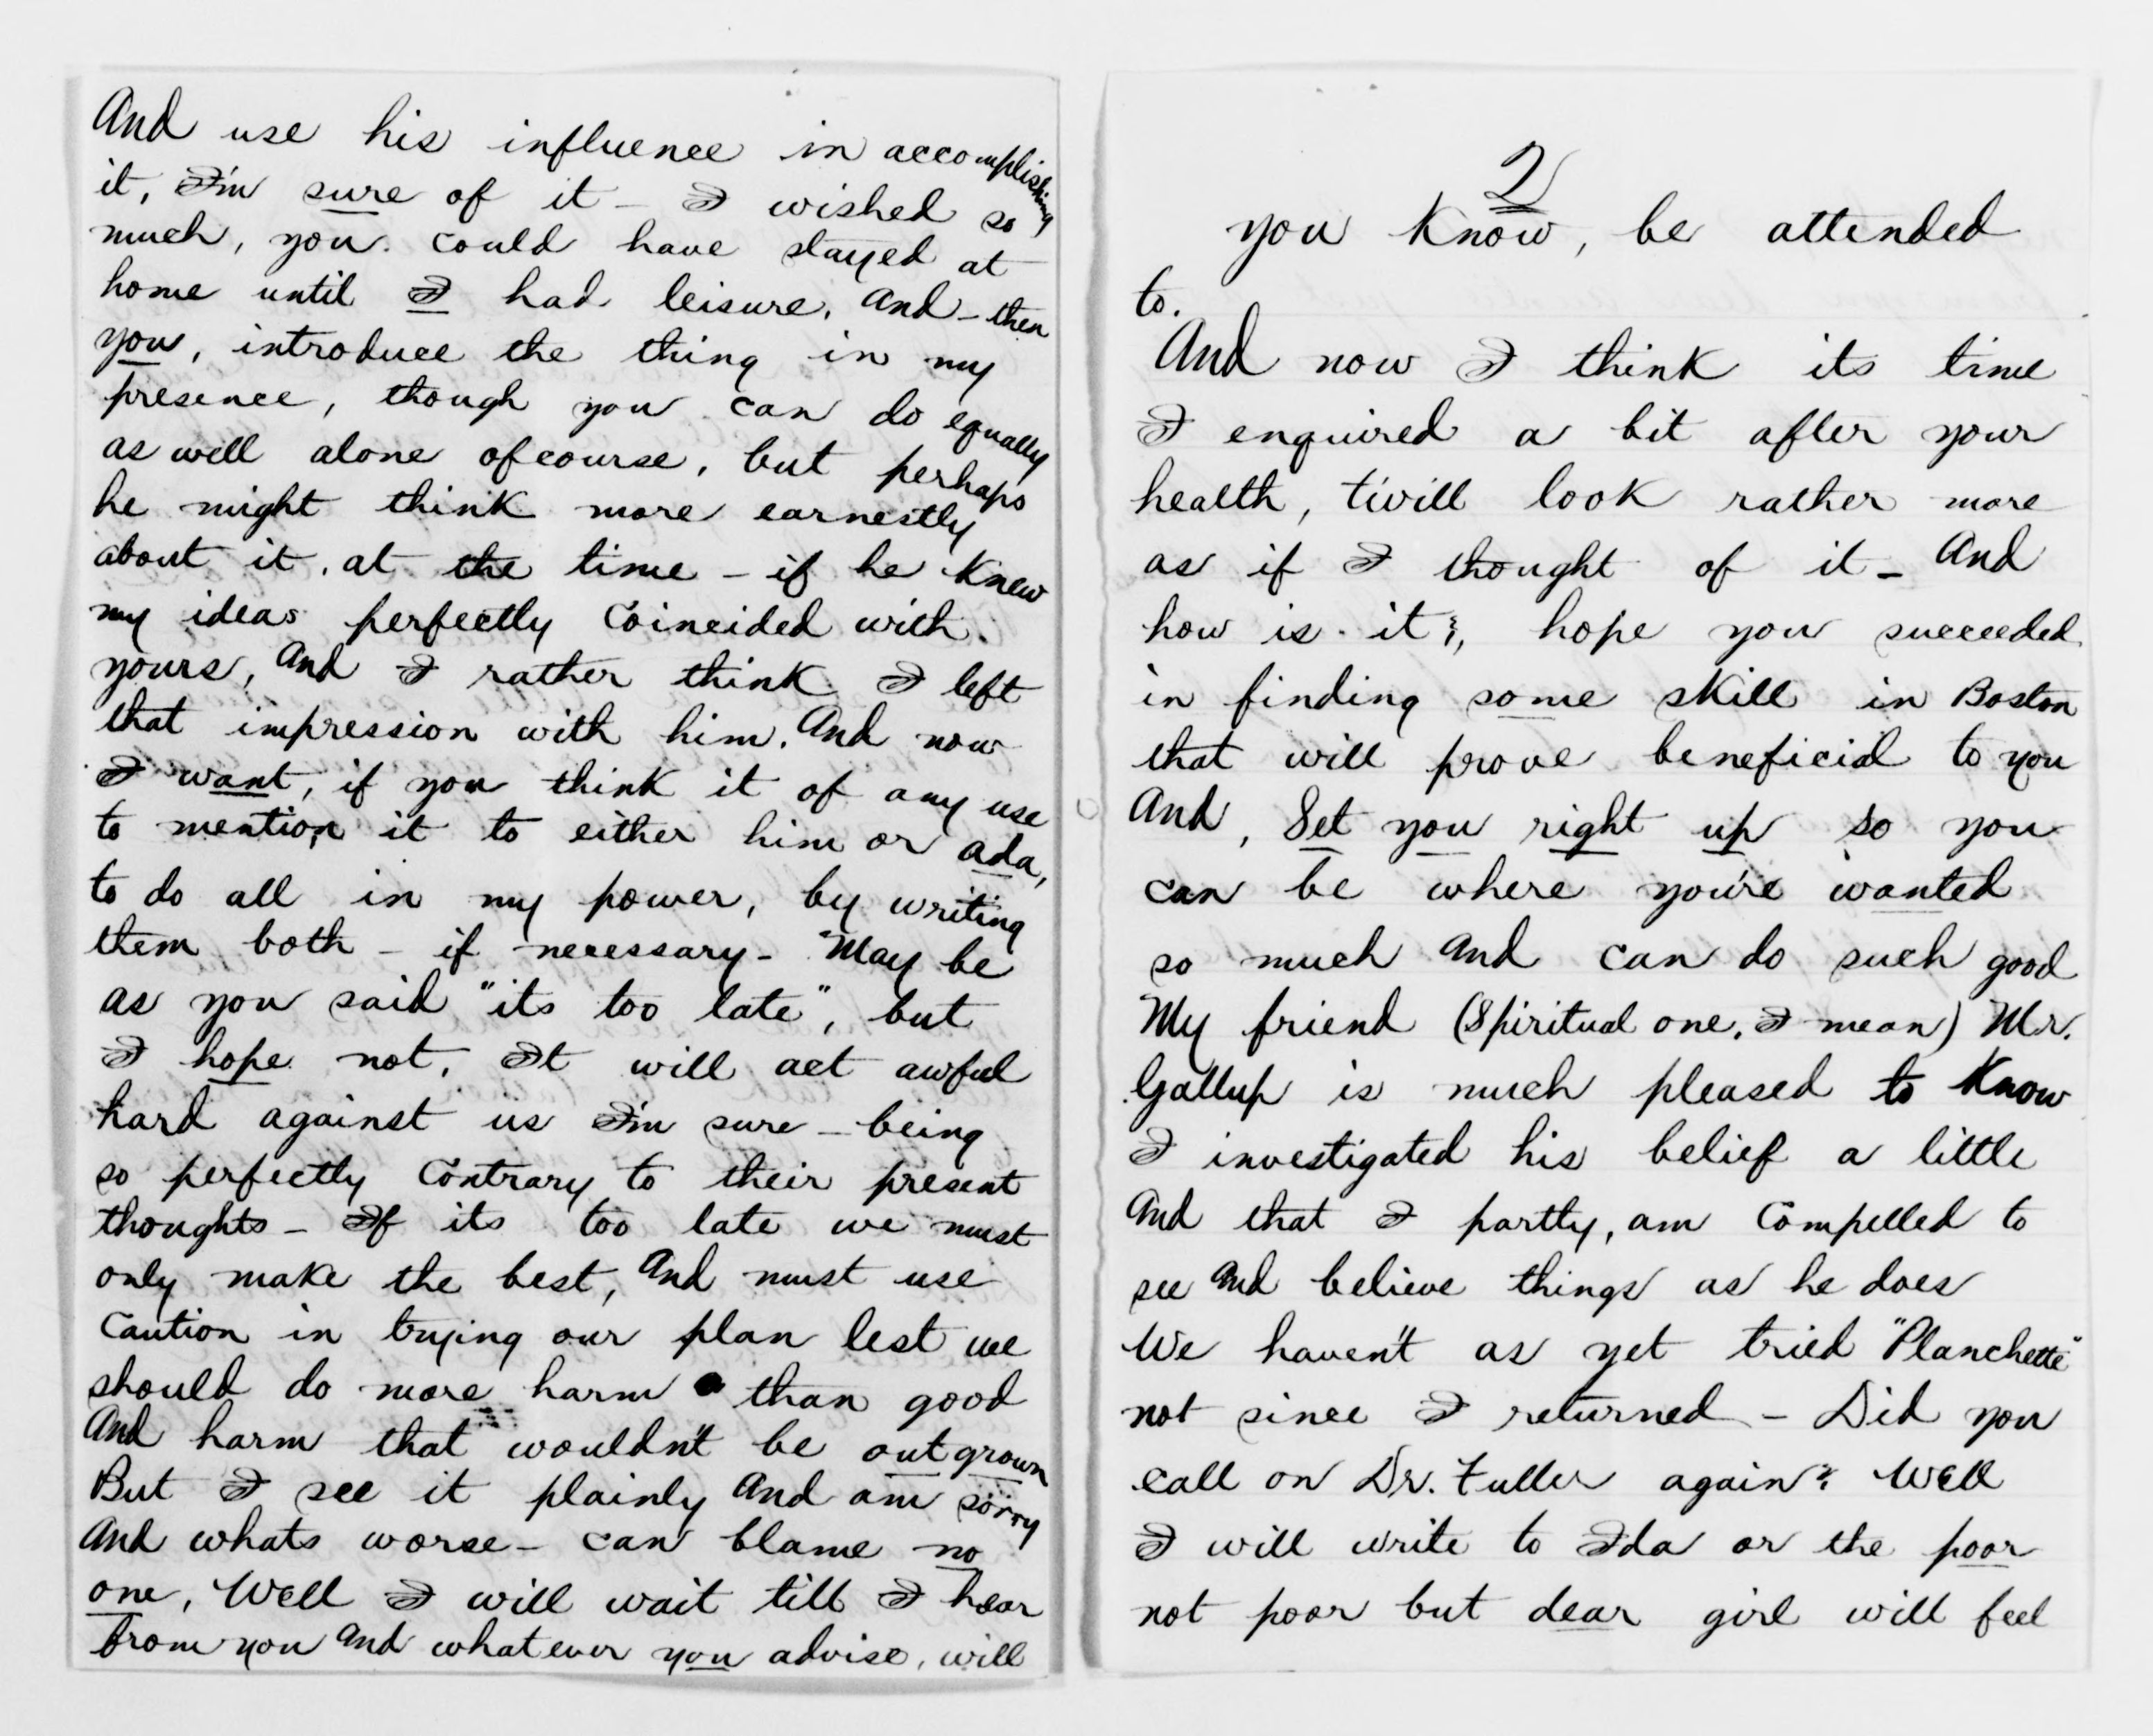 And use his influence in accomplishing
it, I'm sure of it – I wished so
much, you could have stayed at
home until I had leisure, And – then
you, introduce the thing in my
presence, though you can do equally
as well alone ofcourse, but perhaps
he might think more earnestly
about it, at the time – if he knew
my ideas perfectly Coincided with
yours, And I rather think I left
that impression with him. And now
I want, if you think it of any use
to mention it to either him or Ada,
to do all in my power, by writing
them both – if necessary – May be
as you said "its too late", but
I hope not, It will act awful
hard against us I'm sure – being
so perfectly Contrary to their present
thoughts – If its too late we must
only make the best, And must use
Caution in trying our plan lest we
should do more harm than good
And harm that would'nt be outgrown
But I see it plainly And am sorry
And whats worse – can blame no
one, Well I will wait till I hear
from you And whatever you advise, will
2
you Know, be attended
to.
And now I think its time
I enquired a bit after your
health, t'will look rather more
as if I thought of it – And
how is it?, hope you succeeded
in finding some skill in Boston
that will prove beneficial to you
And, Set you right up so you
can be where you're wanted
so much And can do such good
My friend (Spiritual one, I mean) Mr.
Gallup is much pleased to Know
I investigated his belief a little
And that I partly, am Compelled to
see And believe things as he does
We have'nt as yet tried "Planchette"
not since I returned – Did you
call on Dr. Fuller again? Well
I will write to Ida or the poor
not poor but dear girl will feel